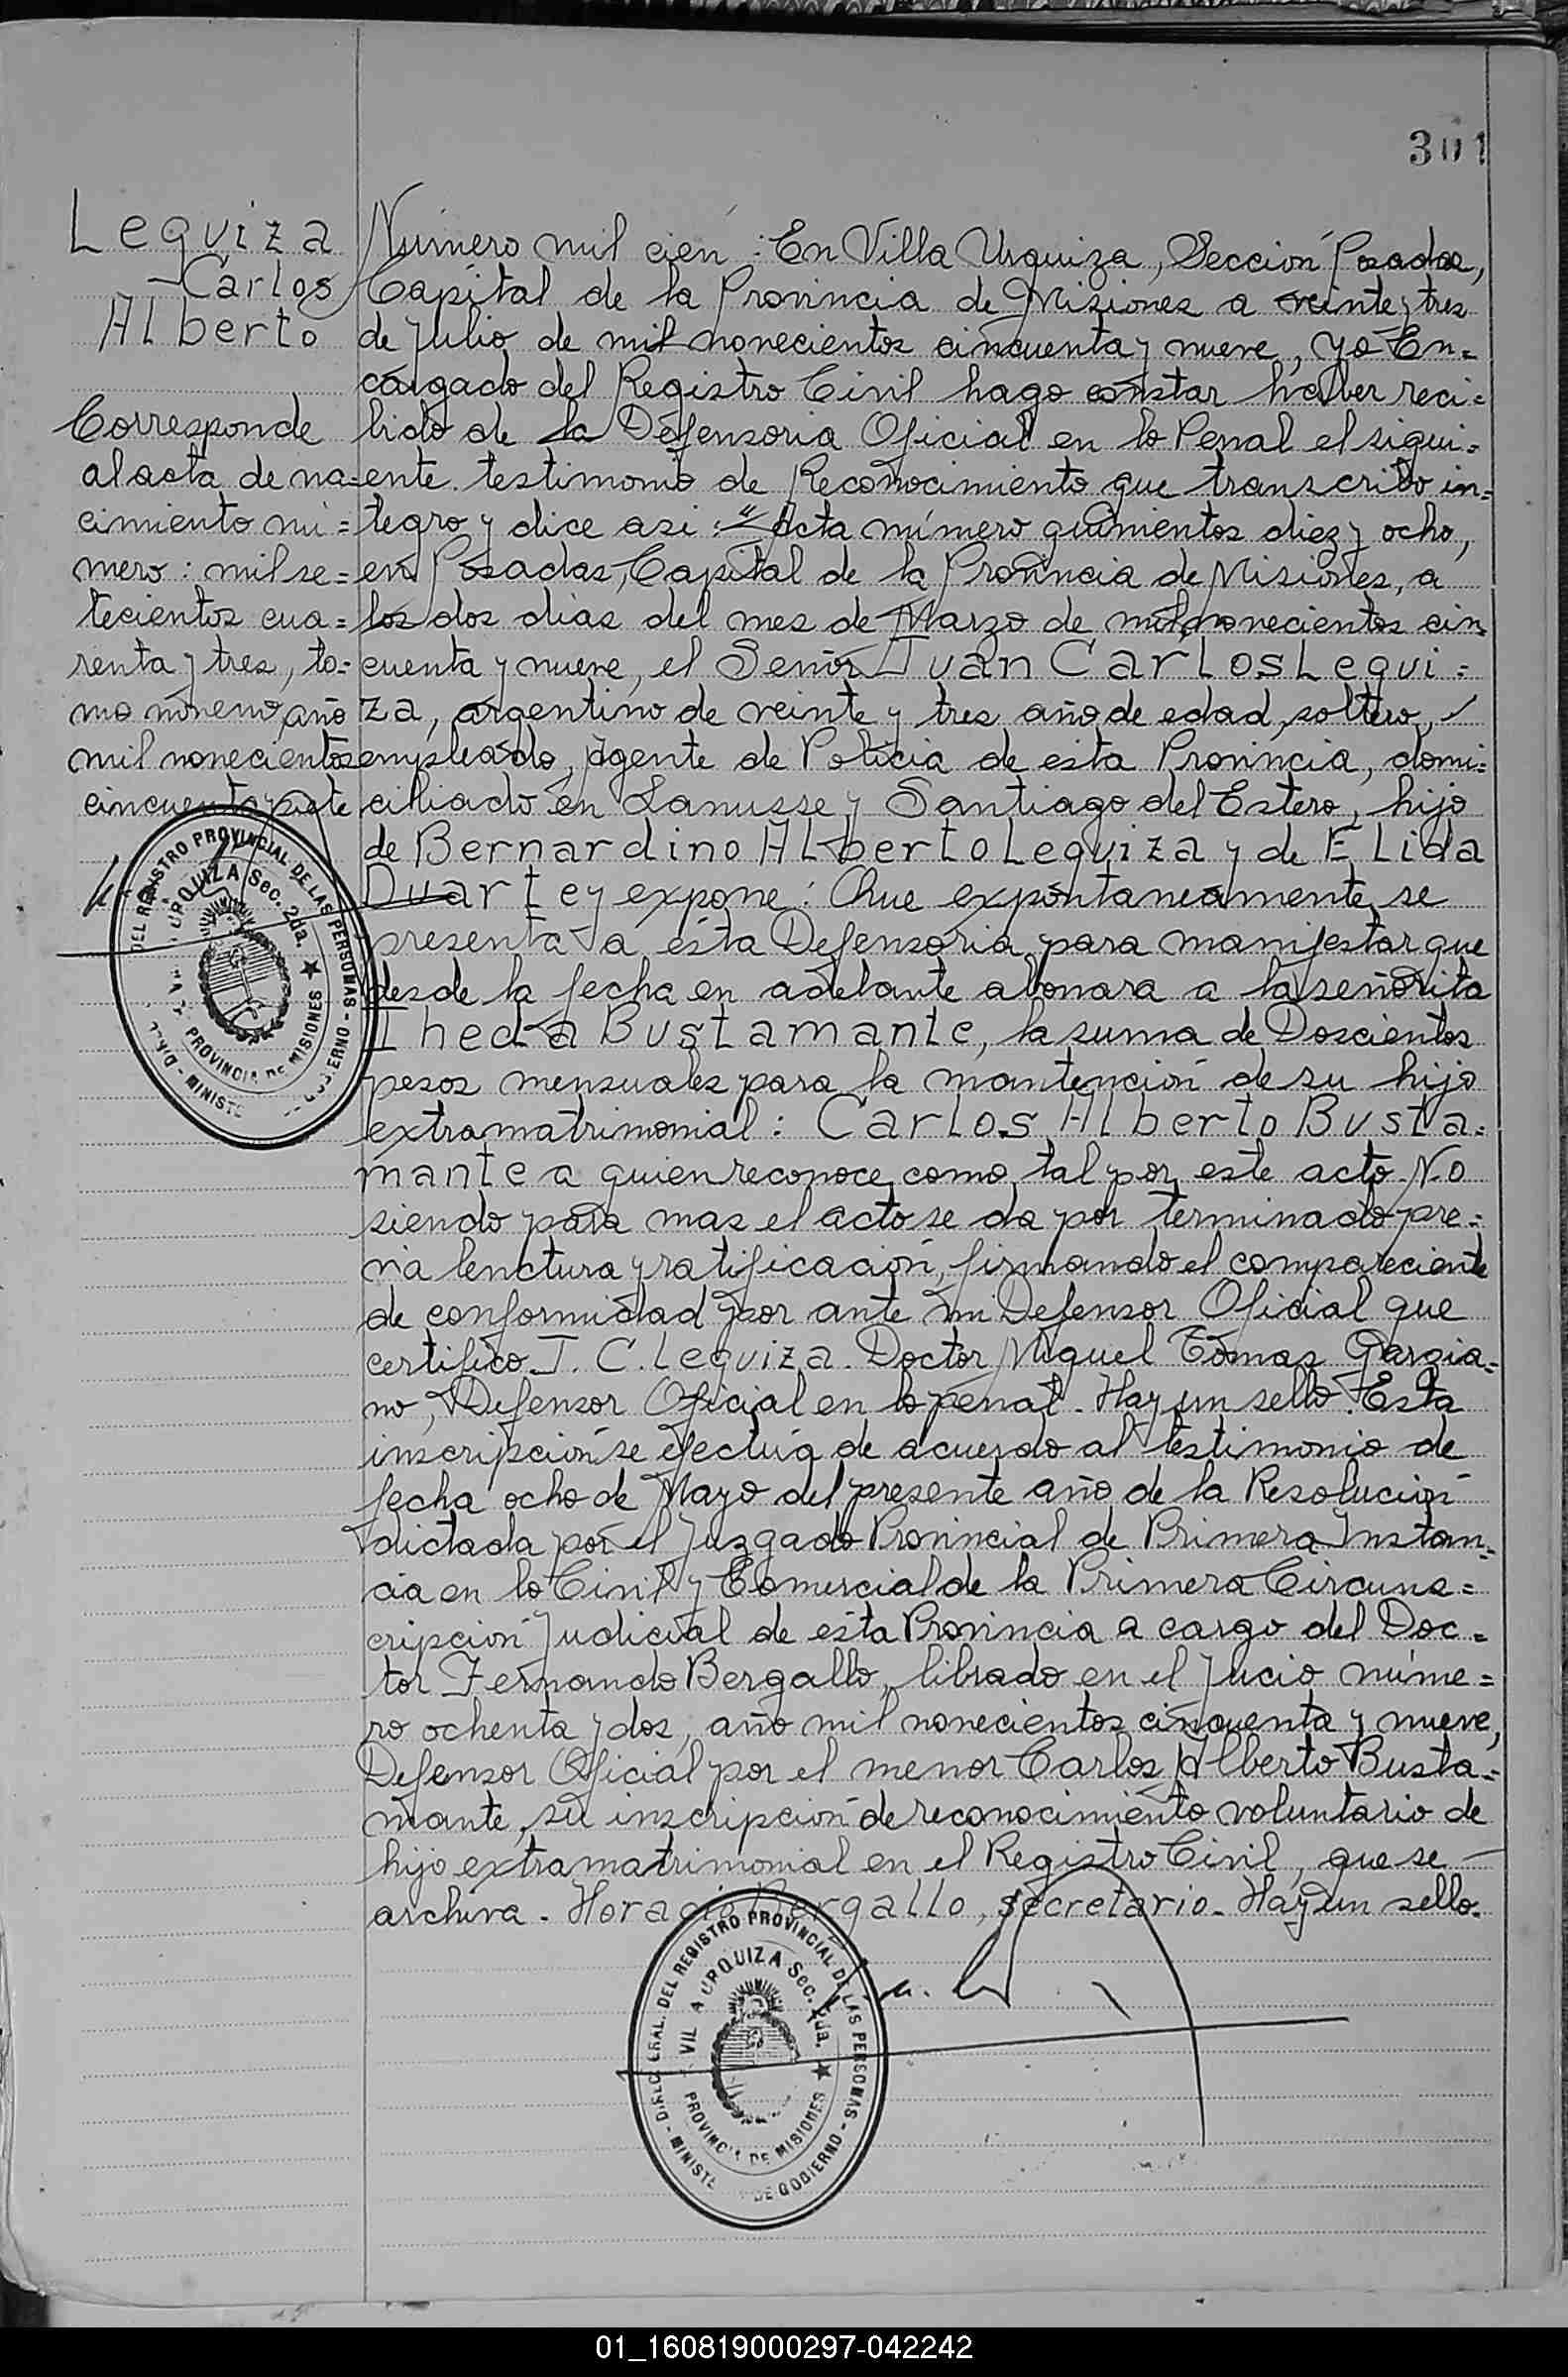 301
Leguiza
Carlos
Alberto
Corresponde
al acta de na=
cimiento nú=
mero: mil se=
tecientos cua=
renta y tres, to=
mo noveno, año
mil novecientos
cincuenta y siete
Número mil cien: En Villa Urquiza, Sección Posadas,
Capital de la Provincia de Misiones a veinte y tres
de Julio de mil novecientos cincuenta y nueve, yo En=
cargado del Registro Civil hago constar haber reci=
bido de la Defensoria Oficial en lo Penal el sigui=
ente testimonio de Reconocimiento que transcribo in=
tegro y dice asi: "Acta número quinientos diez y ocho,
en Posadas, Capital de la Provincia de Misiones, a
los dos dias del mes de Marzo de mil novecientos cin=
cuenta y nueve, el Señor Juan Carlos Legui=
za, argentino de veinte y tres año de edad, soltero,
empleado, Agente de Policia de esta Provincia, domi=
ciliado en Lanusse y Santiago del Estero, hijo
de Bernardino Alberto Leguiza y de Elida
Duarte y expone: Que expontaneamente se
presenta a ésta Defensoria para manifestar que
desde la fecha en adelante abonara a la señorita
Thecla Bustamante, la suma de Doscientos
pesos mensuales para la mantención de su hijo
extramatrimonial: Carlos Alberto Busta=
mante a quien reconoce como tal por este acto. No
siendo para mas el acto se da por terminado pre=
via lenctura y ratificación, firmando el compareciente
de conformidad por ante mi Defensor Oficial que
certifico J. C. Leguiza. Doctor Miguel Tomas Garzia=
no, Defensor Oficial en lo penal. Hay un sello. Esta
inscripción se efectúa de acuerdo al testimonio de
fecha ocho de Mayo del presente año de la Resolución
dictada por el Juzgado Provincial de Primera Instan=
cia en lo Civil y Comercial de la Primera Circuns=
cripción Judicial de ésta Provincia a cargo del Doc=
tor Fernando Bergallo, librado en el Jucio núme=
ro ochenta y dos, año mil novecientos cincuenta y nueve,
Defensor Oficial por el menor Carlos Alberto Busta=
mante, su inscripción de reconocimiento voluntario de
hijo extramatrimonial en el Registro Civil, que se
archiva. Horacio Bergallo, secretario. Hay un sello.
DEL REGISTRO PROVINCIAL DE LAS PERSONAS
URQUIZA Sec. 2da.
PROVINCIA DE MISIONES
GOBIERNO
DEL REGISTRO PROVINCIAL DE LAS PERSONAS
URQUIZA Sec. 2da.
PROVINCIA DE MISIONES
DE GOBIERNO
01_160819000297-042242